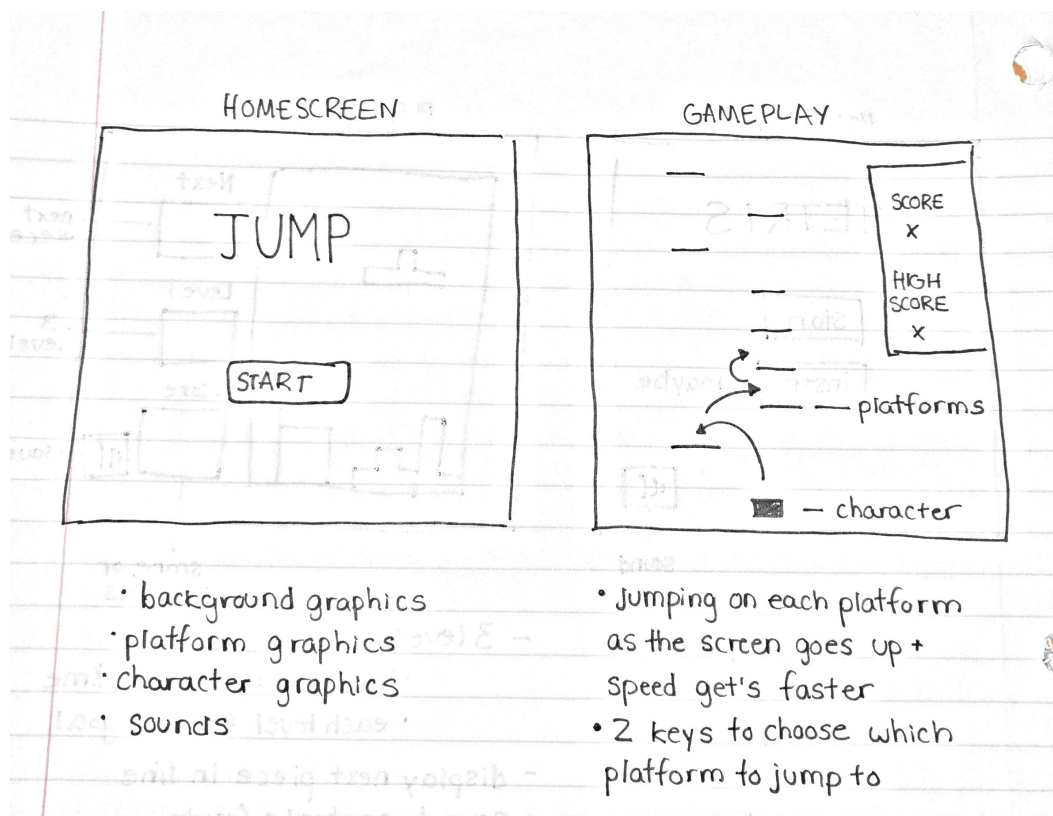 HOMESCREEN
JUMP
START
• background graphics
• platform graphics
• character graphics
• sounds
GAMEPLAY
SCORE
x
HIGH
SCORE
x
— platforms
— character
• Jumping on each platform
as the screen goes up +
speed get's faster
• 2 keys to choose which
platform to jump to